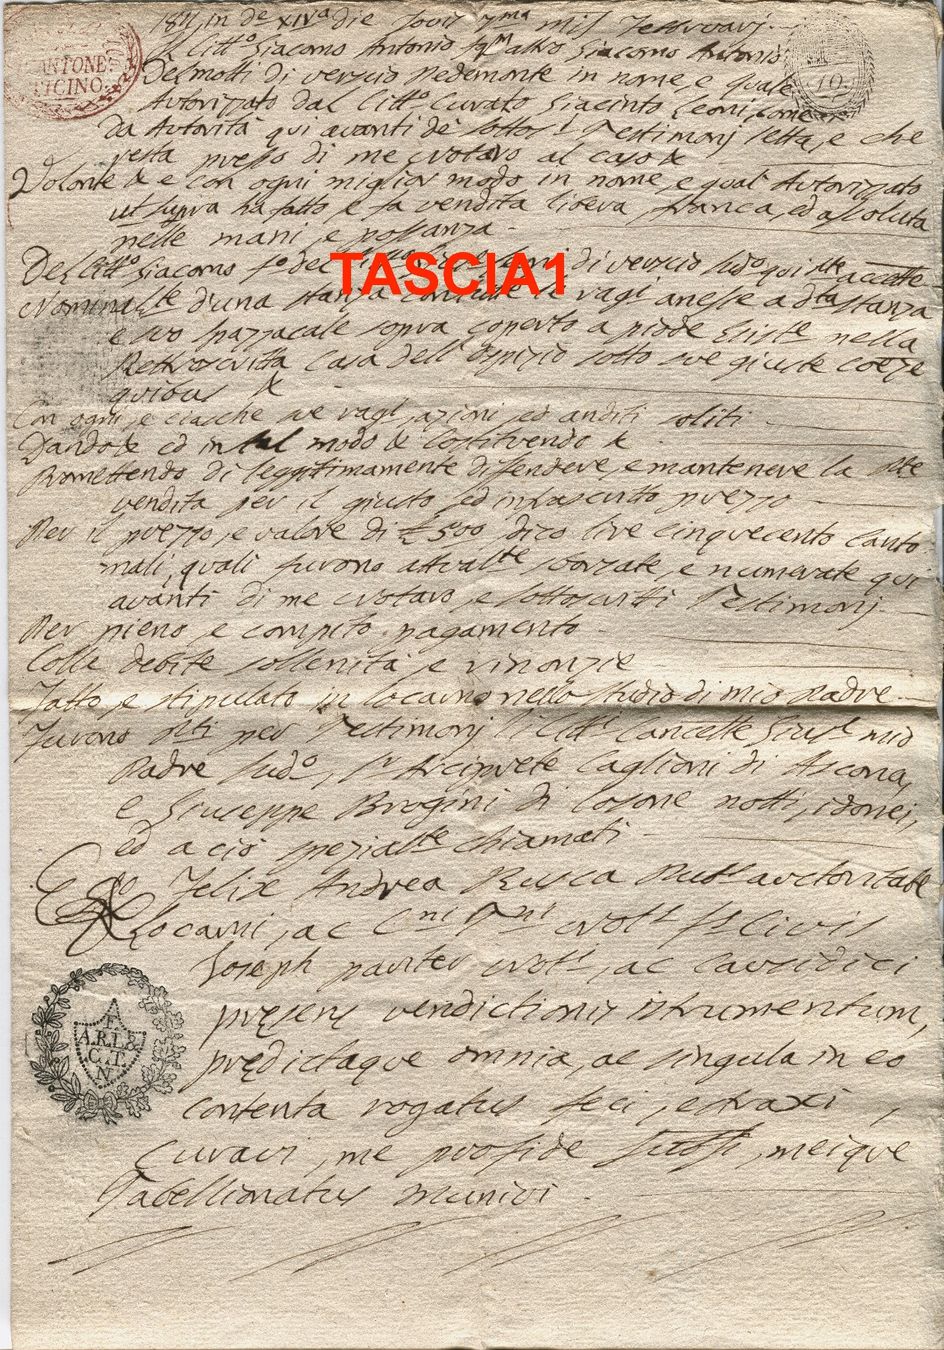 CANTONE
TICINO
10
1811 in de XIVa die Jovis 7ma mis Febbruarj
Il Citto Giacomo Antonio qm altro Giacomo Antonio
Delmotti di verscio Pedemonte in nome, e quale
Autorizzato dal Citto Curato Giacinto Leoni, come
da Autorità qui avanti de sottos Testimonj letta, e che
resta presso di me rotaro al caso &
Volonte & e con ogni miglior modo in nome, e qual Autorizzato
ut supra ha fatto, e fa vendita libera, franca, ed assoluta
nelle mani, e possanza
Del Citto Giacomo fo del di verscio sudo qui accetto
TASCIA1
Nominalte d'una stanza e ragi anesse a dta stanza
e suo spazzacale sopra coperto a piode Existe nella
Retroscritta Casa dell'Ospizio sotto sue giuste coeze
quibus &
Con ogni, e ciasche sue ragi, azioni, ed anditi soliti
Dando & ed in tal modo & Costituendo &
Promettendo di leggittimamente diffendere, e mantenere la pnte
vendita per il giusto, ed infrascritto prezzo
Per il prezzo, e valore di £ 500 dico lire cinquecento canto
nali, quali furono attualte sborzate, e numerate qui
avanti di me rotaro, e sottoscritti Testimonj
Per pieno, e compito pagamento
Colle debite sollenità, e rinonzie
Fatto, e stipulato in Locarno nello studio di mio Padre
Furono pnti per Testimonj li Citti Cancelle Giuse mio
Padre sudo, Sr Arciprete Caglioni di Ascona,
e Giuseppe Brogini di Losone notti, idonei,
ed a ciò spezialte chiamati
Ego Felix Andrea Rusca Pubs auctoritate
Locarni, ac Cni Tni rots fs Civis
Joseph pariter rots, ac Causidici
pręsens vendictionis istrumentum,
prędictaque omnia, ac singula in eo
contenta rogatus feci, estraxi,
curavi, me pro fide subssi, meique
Tabellionatus munivi
F.
A.R.L.&
C.T.
N.